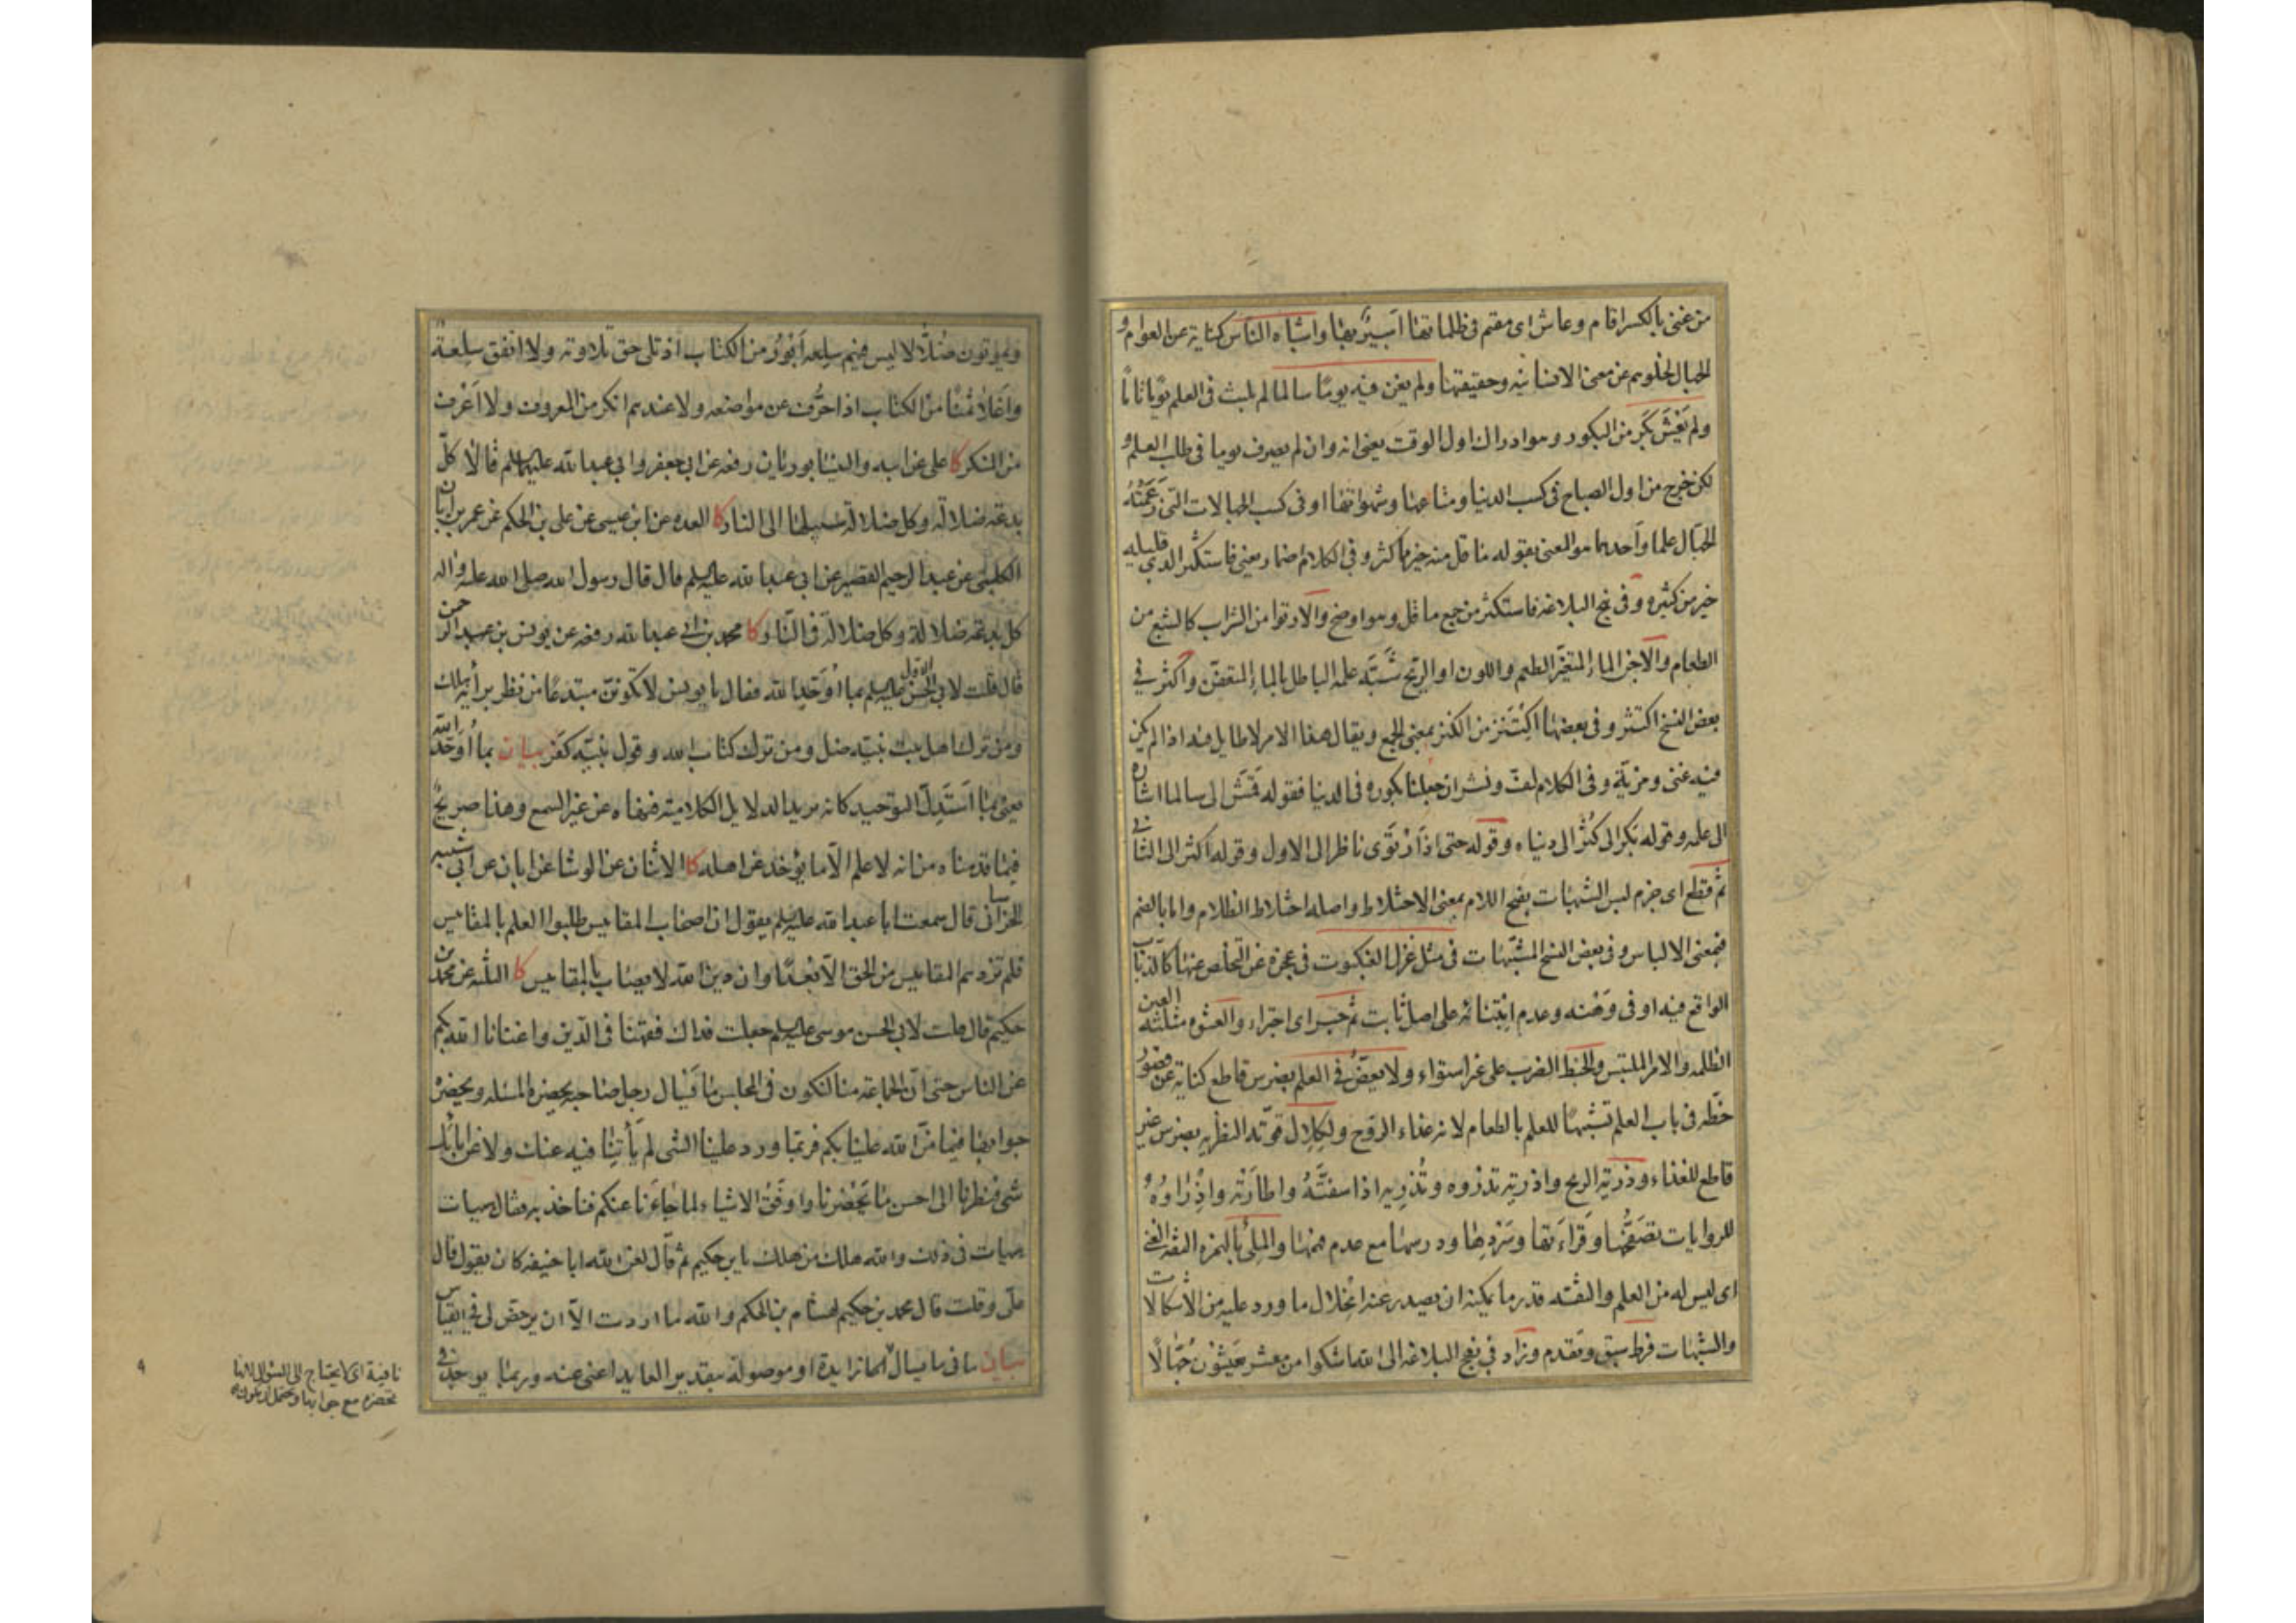 من غنى بالكسر اقام وعاش اى مقيم فى ظلماتها اسير بها واشباه الناس كناية عن العوام و
الجهال لخلوهم عن معنى الانسانيه وحقيقتها ولم يغن فيه يومًا سالما لم يلبث فى العلم يومًا تامًا
ولم يغش بَكَّر من البكور وهو ادراك اول الوقت يعنى انه وان لم يصرف يوما فى طلب العلم و
لكن خرج من اول الصباح فى كسب الدنيا ومتاعها وشهواتها او فى كسب الجهالات التى زعمته
الجهال علما واحدهما هو المعنى بقوله ما قل منه خير مما كثر وفى الكلام اضمار يعنى فاستكثر الذى قليله
خير من كثيره وفى نهج البلاغه فاستكثر من جمع ما قل وهو اوضح والارتوا من الشراب كالشبع من
الطعام والاجن الماء المتغير الطعم واللون او الريح شبّه علمه الباطل بالماء المتعفن واكثر فى
بعض النسخ اكتثر وفى بعضها اكتنز من الكنز بمعنى الجمع ويقال هذا الامر لا طايل فيه اذا لم يكن
فيه غنى ومزية وفى الكلام لف ونشر ان جعلنا بكوره فى الدنيا فقوله قمّش الى سالما اشاره
الى علمه وقوله بكر الى كثر الى دنياه وقوله حتى اذا ارتوى ناظر الى الاول وقوله اكثر الى الثانى
ثم قطع اى جزم لبس الشبهات بفتح اللام بمعنى الاختلاط واصله اختلاط الظلام واما بالضم
فبمعنى الالباس وفى بعض النسخ المشبّهات فى مثل غزل العنكبوت فى عجزه عن التخلص عنها كالذباب
الواقع فيه او فى وهنه وعدم ابتنائه على اصل ثابت ثم جسر اى اجترا والعشوه مثلثه العين
الظلمه والامر الملتبس والخبط الضرب على غير استواء ولا يعضّ فى العلم بضرس قاطع كناية عن قصور
حظّه فى باب العلم تشبيهًا للعلم بالطعام لانه غذاء الروح ولكلال قوته النظريه بضرس غير
قاطع للغذاء وذرته الريح واذرته تذروه وتُذريه اذا سفته واطارته واِذراؤه
للروايات تصفّحُها وقراءتها وسردها ودرسها مع عدم فهمها والملئ بالهمزه الثقه الغنى
اى ليس له من العلم والثقه قدر ما يمكنه ان يصدر عنه انحلال ما ورد عليه من الاشكالات
والشبهات فرط سبق وتقدم وزاد فى نهج البلاغه الى الله اشكوا من معشر يعيشون جُهّالًا
ويموتون ضلّالا ليس فيهم سلعه ابور من الكتاب اذ تلى حق تلاوته ولا انفق سلعة
واغلا ثمنًا من الكتاب اذا حُرّف عن مواضعه ولا عندهم انكر من المعروف ولا اعرف
من المنكر كا على عن ابيه والنيشابوريان رفعه عن ابى جعفر وابى عبد الله عليهما السلم قالا كلّ
بدعة ضلالة وكل ضلالة سبيلها الى النار كا العده عن ابن عيسى عن على بن الحكم عن عمر بن ابان
الكلبى عن عبد الرحيم القصير عن ابى عبد الله عليه السلم قال قال رسول الله صلى الله عليه واله
كل بدعة ضلالة وكل ضلالة فى النار كا محمد بن ابى عبد الله رفعه عن يونس بن عبد الرحمن
قال قلت لابى الحسن الاول عليه السلم بما اُوَحّد الله فقال يا يونس لا تكونن مبتدعًا من نظر برأيه هلك
ومن ترك اهل بيت نبيّه ضل ومن ترك كتاب الله وقول نبيّه كفر بيان بما اُوَحّد الله
يعنى بما استدلّ التوحيد كانه يريد الدلايل الكلاميه فنهاه عن غير السمع وهذا صريح
فيما قدمناه من انه لا علم الا ما يؤخذ عن اهله كا الاثنان عن الوشا عن ابان عن ابى شيبه
الخراسانى قال سمعت ابا عبد الله عليه السلم يقول ان اصحاب المقاييس طلبوا العلم بالمقاييس
فلم تزدهم المقاييس من الحق الا بعدًا وان دين الله لا يصاب بالمقاييس كا الثلثه عن محمد بن
حكيم قال قلت لابى الحسن موسى عليه السلم جعلت فداك فقهنا فى الدين واغنانا الله بكم
عن الناس حتى ان الجماعة منا لتكون فى المجلس ما يسال رجل صاحبه يحضره المسئله ويحضره
جوابها فيما منّ الله علينا بكم فربما ورد علينا الشى لم يأتنا فيه عنك ولا عن ابائك
شى فنظرنا الى احسن ما يحضرنا واوفق الاشياء لما جاءنا عنكم فناخذ به فقال هيهات
هيهات فى ذلك والله هلك من هلك يابن حكيم ثم قال لعن الله ابا حنيفه كان يقول قال
على وقلت قال محمد بن حكيم لهشام بن الحكم والله ما اردت الا ان يرخص لى فى القياس
بيان ما فى ما يسال اما زايدة او موصولة بتقدير العايد اعنى عنه وربما يوجد فى
نافية اى لا يحتاج الى السؤال لانها
تحضره مع جوابها ويحتمل ان يكون